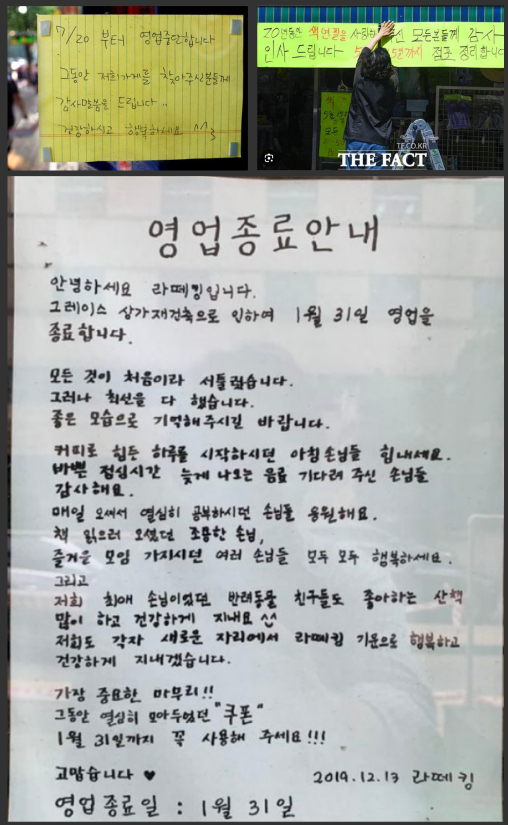 7/20 부터 영업중단합니다
그동안 저희가게를 찾아주신분들께
감사말씀을 드립니다..
건강하시고 행복하세요 ^^
20년동안 색연필을 사랑하 신 모든분들께 감사
인사 드립니다 까지 점포 정리합니다
TF.CO.KR
THE FACT
영업종료안내
안녕하세요 라떼킹입니다.
그레이스 상가재건축으로 인하여 1월 31일 영업을
종료합니다.
모든 것이 처음이라 서툴렀습니다.
그러나 최선을 다 했습니다.
좋은 모습으로 기억해주시길 바랍니다.
커피로 힘든 하루를 시작하시던 아침손님들 힘내세요.
바쁜 점심시간 늦게 나오는 음료 기다려 주신 손님들
감사해요.
매일 오셔서 열심히 공부하시던 손님들 응원해요.
책 읽으러 오셨던 조용한 손님,
즐거운 모임 가지시던 여러 손님들 모두 모두 행복하세요.
그리고
저희 최애 손님이었던 반려동물 친구들도 좋아하는 산책
많이 하고 건강하게 지내요 ^^
저희도 각자 새로운 자리에서 라떼킹 기운으로 행복하고
건강하게 지내겠습니다.
가장 중요한 마무리!!
그동안 열심히 모아두었던 "쿠폰"
1월 31일까지 꼭 사용해 주세요!!!
고맙습니다 ♥ 2019.12.13 라떼킹
영업종료일 : 1월 31일